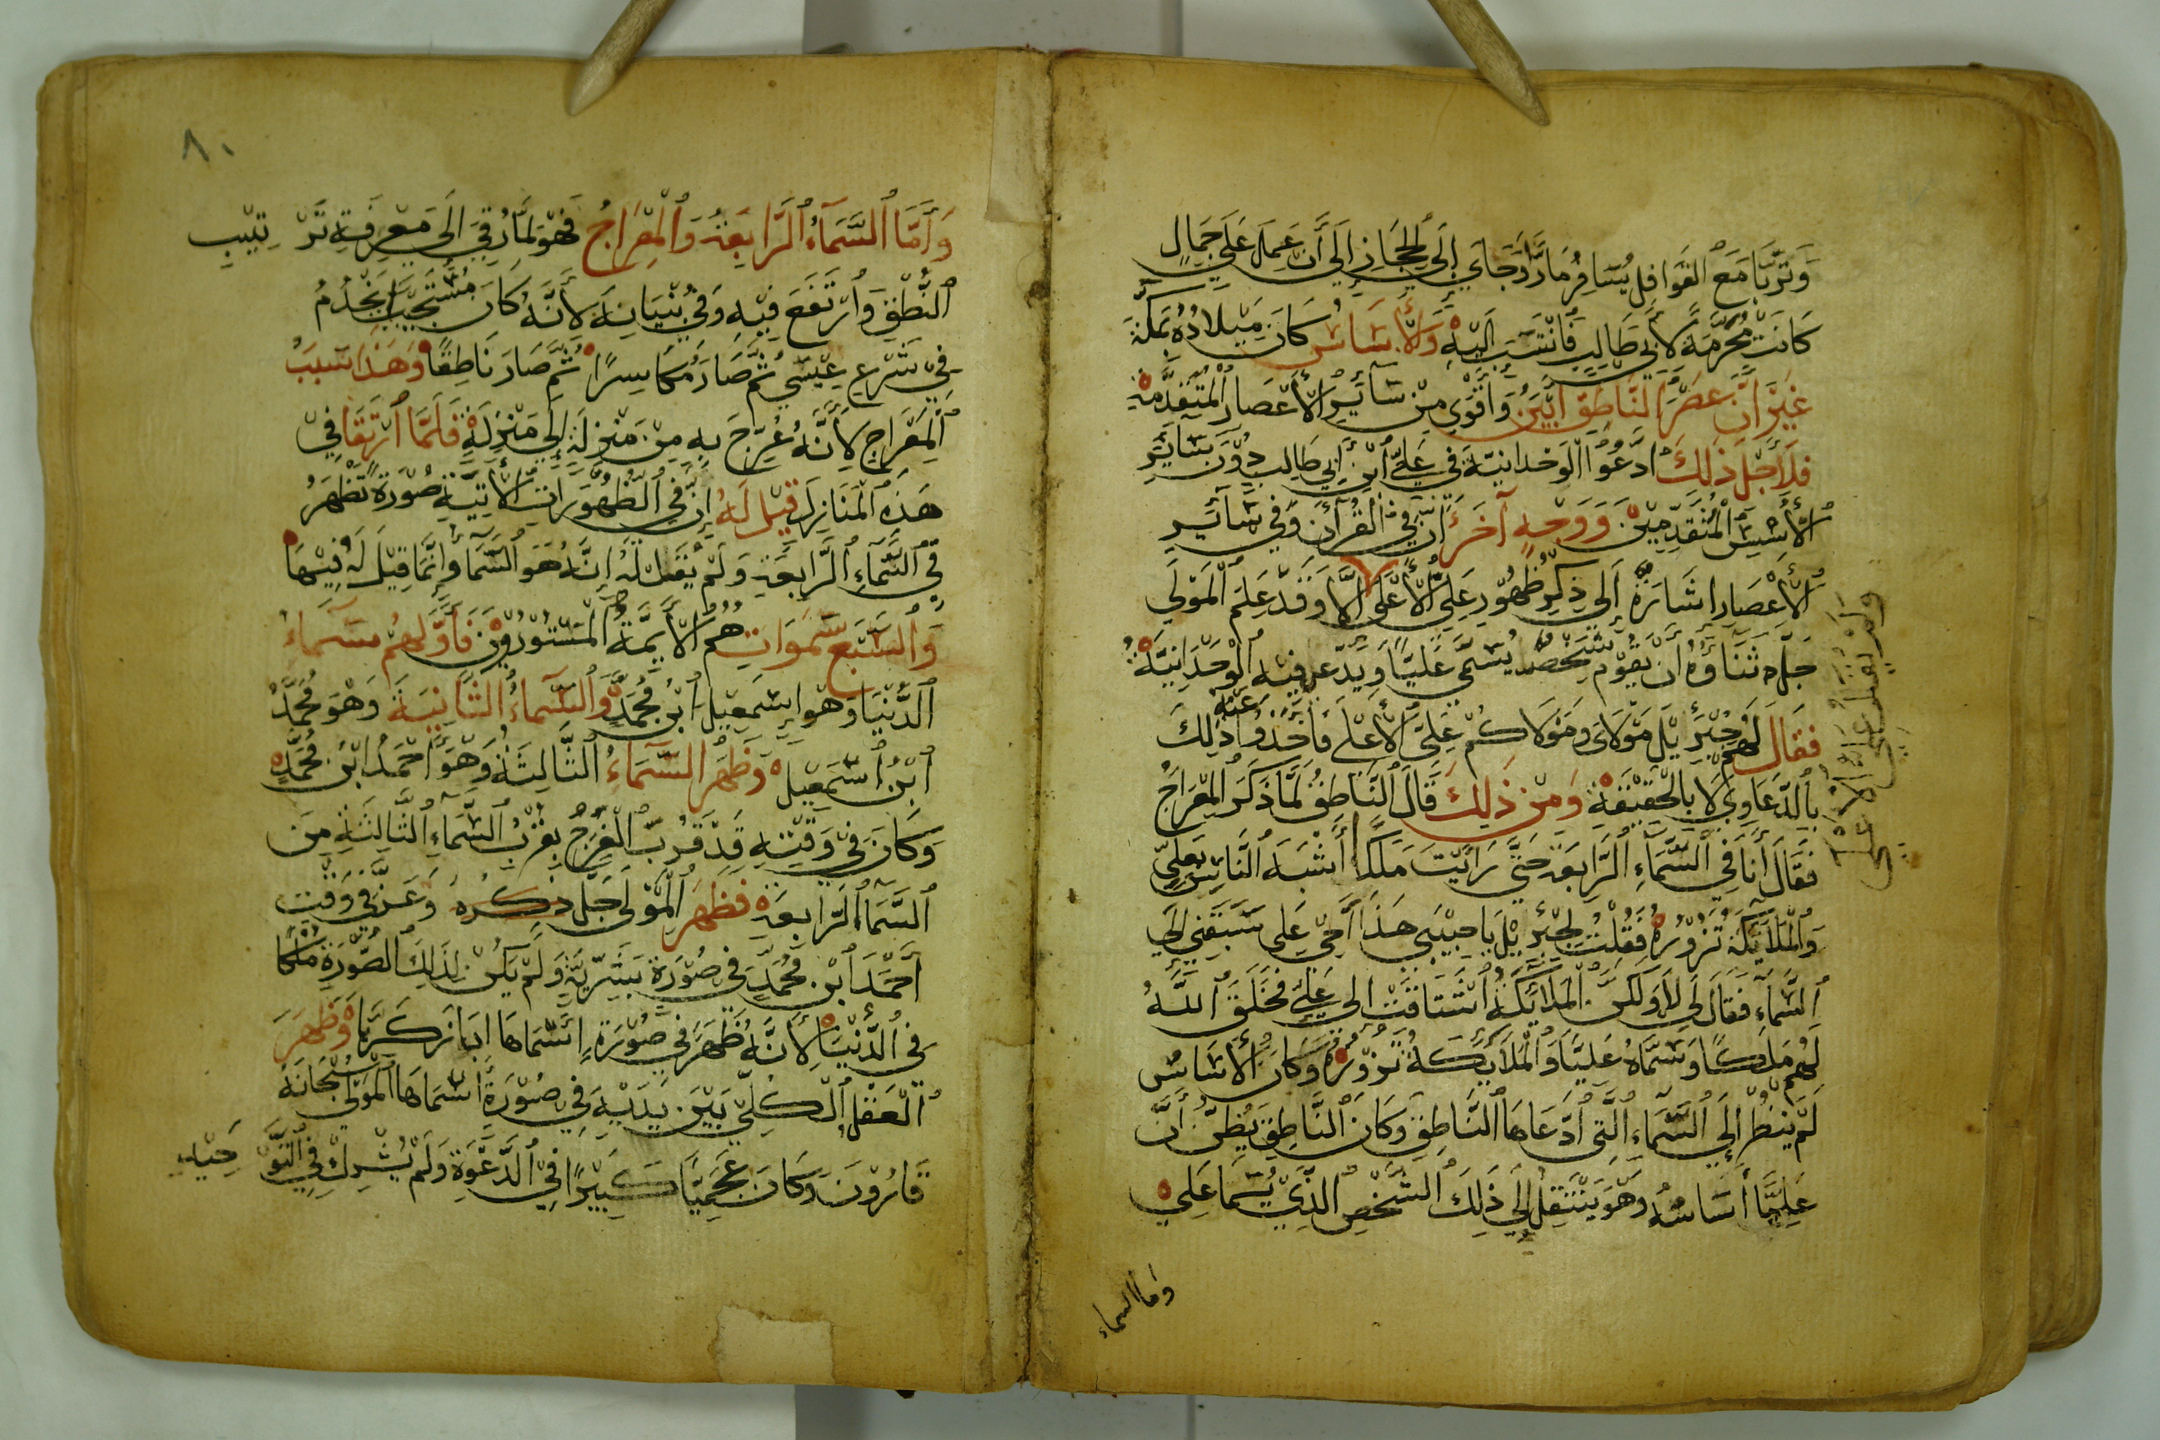 وَتَرَبَّا مَعَ القَوَافِل يُسَافِرُ مَارًّا وَجَاي إلَى الحِجَازِ إلَى أَن عَمِلَ عَلَى جِمَالٍ
كَانَت مُحَرَّمَةً لأَبِي طَالِبٍ فَانْتَسَبَ إلَيْهِ وَالأَسَاسُ كَانَ مِيْلَادُهُ بِمَكَّةَ
غَيْرَ أنَّ عَصْرَ النَّاطِقِ أبْيَنُ وَأقْوَى مِنْ سَائِرِ الأَعْصَارِ المُتَقَدِّمَةِ
فَلِأَجْلِ ذَلِكَ ادَّعُوْا الوَحْدَانِيَّةَ فِي عَلِيِّ ابْنِ أَبِي طَالِبٍ دُوْنَ سَائِرِ
الأُسُسِ المُتَقَدِّمِيْنَ وَوَجْهٍ آخَرَ أنَّ فِي القُرْآنِ وَفِي سَائِرِ
الأَعْصَارِ إشَارَةً إلَى ذِكْرِ ظُهُوْرِ عَلِيِّ الأَعْلَى إلَّا وَقَدْ عَلِمَ المَوْلَى
جَلَّ ثَنَاؤُهُ أنْ يَقُوْمَ شَخْصٌ يُسَمَّى عَلِيًّا وَيُدَّعَى فِيْهِ الوَحْدَانِيَّةُ
فَقَالَ لَهُم جِبْرَئِيْل مَوْلَايَ وَمَوْلَاكُم عَلِيّ الأَعْلَى فَأَخَذُوا عَنْهُ ذَلِكَ
بِالدَّعَاوِي لَا بِالحَقِيْقَةِ وَمِنْ ذَلِكَ قَالَ النَّاطِقُ لَمَّا ذَكَرَ المِعْرَاجَ
فَقَالَ أَنَا فِي السَّمَآءِ الرَّابِعَة حَتَّى رَأَيْتَ مَلَكًا أَشْبَهَ النَّاسِ بِعَلِيٍّ
وَالمَلَائِكَة تَزُوْرُهُ فَقُلْتُ لِجِبْرَئِيْل يَا حَبِيْبِي هَذَا أَخِي عَلِي سَبَقَنِي إلَى
السَّمَآءِ فَقَالَ لِي لَا وَلَكِنَّ المَلَائِكَةَ اشْتَاقَتْ إلى عَلِيٍّ فَخَلَقَ اللهُ
لَهُم مَلَكًا وَسَمَّاهُ عَلِيًّا وَالمَلَائِكَةُ تَزُوْرُهُ وَكَانَ الأَسَاسُ
لَمْ يَنْظُرْ إلَى السَّمَآءِ الَّتِي ادَّعَاهَا النَّاطِق وَكَانَ النَّاطِق يَظُنُّ أَنَّ
عَلِيًّا أَسَاسُهُ وَهُوَ يَنْتَقِلُ إلَى ذَلِكَ الشَّخْصِ الَّذِي يُسَمَّا عَلِي
وأما السماء
ولم يقل علي الأعلى
٨٠
وَأَمَّا السَّمَآءُ الرَّابِعَةُ وَالمِعْرَاجُ فَهُوَ لَمَّا رُقِيَ إلَى مَعْرِفَةِ تَرْتِيْبِ
النُّطْقِ وَارْتَفَعَ فِيْهِ وَفِي بُنْيَانِهِ لِأَنَّهُ كَانَ مُسْتَجِيْبًا يَخْدُمُ
فِي شَرْعِ عِيْسَى ثُمَّ صَارَ مُكَاسِرًا ثُمَّ صَارَ نَاطِقًا وَهَذَا سَبَبُ
المِعْرَاجِ لِأَنَّهُ عُرِّجَ بِهِ مِنْ مَنْزِلَةٍ إلَى مَنْزِلَةٍ فَلَمَّا ارْتَقَا فِي
هَذِهِ المَنَازِلِ قِيْلَ لَهُ إنَّ فِي الظُّهُوْرَاتِ الأَتِيَّةِ صُوْرَةً تَظْهَرُ
فِي السَّمَآءِ الرَّابِعَةِ وَلَمْ يُقَلْ لَهُ إنَّهُ هُوَ السَّمَا وَإنَّمَا قِيْلَ لَهُ فِيْهَا
وَالسَّبْعُ سَمَوَاتٍ هُمُ الأَئِمَّةُ المَسْتُوْرُوْنَ فَأَوَّلُهُم سَمَاءُ
الدُّنْيَا وَهُوَ إسْمَعِيْلُ ابْنُ مُحَمَّدٍ وَالسَّمَاءُ الثَّانِيَةُ وَهُوَ مُحَمَّدُ
ابْنُ اسْمَعِيْل وَظَهَرَ السَّمَاءُ الثَّالِثَةُ وَهُوَ أَحْمَدُ ابْنُ مُحَمَّدٍ
وَكَانَ فِي وَقْتِهِ قَدْ قَرُبَ الفَرَجُ بِقُرْبِ السَّمَآءِ الثَّالِثَةِ مِنَ
السَّمَاءِ الرَّابِعَةِ فَظَهَرَ المَوْلَى جَلَّ ذِكْرُهُ وَعَزَّ فِي وَقْتِ
أَحْمَدَ ابْنِ مُحَمَّدٍ فِي صُوْرَةٍ بَشَرِيَّةٍ وَلَمْ يَكُنْ لِذَلِكَ الصُّوْرَةِ مُلْكًا
فِي الدُّنْيَا لِأَنَّهُ ظَهَرَ فِي صُوْرَةٍ اسْمَاهَا أبَا زَكَرِيَّا وَظَهَرَ
العَقْلُ الكُلِّيّ بَيْنَ يَدَيْهِ فِي صُوْرَةٍ اسْمَاهَا المَوْلَى سُبْحَانَهُ
قَارُوْنَ وَكَانَ عَجَمِيًّا كَبِيْرًا فِي الدَّعْوَةِ وَلَمْ يُشْرِك فِي التَّوْحِيْدِ